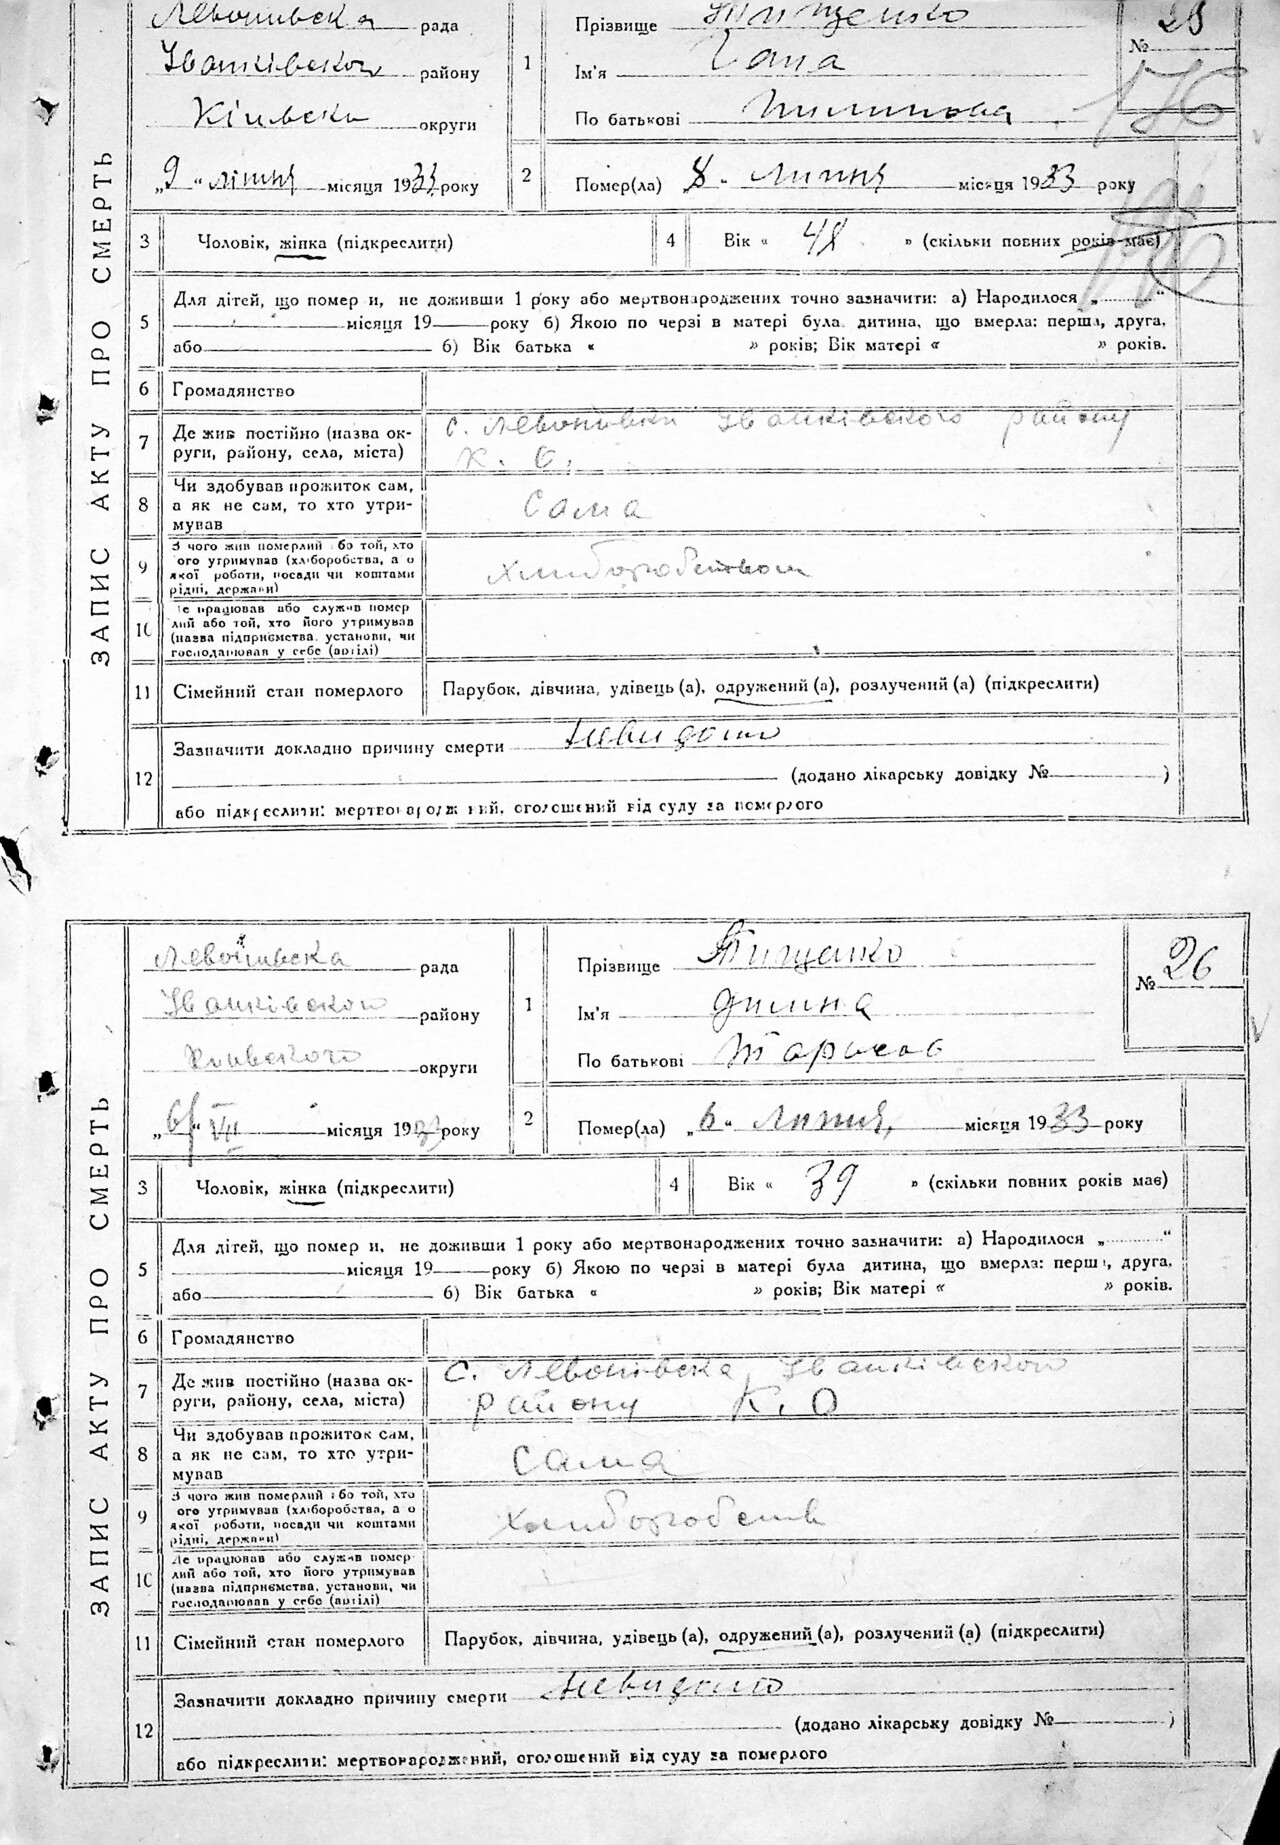 ЗАПИС АКТУ ПРО СМЕРТЬ
рада
Іванківского району
округи
„9“ місяця 1933 року
1
Прізвище Тищенко
Ім'я
По батькові
№ 25
176
2
Помер(ла) 8 „ Липня місяця 1933 року
3
Чоловік, жінка (підкреслити)
4
Вік « 48 » (скільки повних років має)
5
Для дітей, що померли, не доживши 1 року або мертвонароджених точно зазначити: а) Народилося „ “
місяця 19 року б) Якою по черзі в матері була дитина, що вмерла: перша, друга,
або б) Вік батька « » років; Вік матері « » років.
6
Громадянство
7
Де жив постійно (назва ок-
руги, району, села, міста)
с. Іванківского району
К. О.
8
Чи здобував прожиток сам,
а як не сам, то хто утри-
мував
Сама
9
З чого жив померлий або той, хто
його утримував (хліборобства, а о
якої роботи, посади чи коштами
рідні, держави)
10
Де працював або служив помер
лий або той, хто його утримував
(назва підприємства, установи, чи
господарював у себе (артілі)
11
Сімейний стан померлого
Парубок, дівчина, удівець (а), одружений (а), розлучений (а) (підкреслити)
12
Зазначити докладно причину смерти невидомо
(додано лікарську довідку № )
або підкреслити: мертвонароджений, оголошений від суду за померлого
ЗАПИС АКТУ ПРО СМЕРТЬ
рада
Іванківского району
округи
„6“ VII місяця 1933 року
1
Прізвище Тищенко
Ім'я
По батькові
№ 26
2
Помер(ла) „6“ Липня місяця 1933 року
3
Чоловік, жінка (підкреслити)
4
Вік « 39 » (скільки повних років має)
5
Для дітей, що померли, не доживши 1 року або мертвонароджених точно зазначити: а) Народилося „ “
місяця 19 року б) Якою по черзі в матері була дитина, що вмерла: перша, друга,
або б) Вік батька « » років; Вік матері « » років.
6
Громадянство
7
Де жив постійно (назва ок-
руги, району, села, міста)
с. Іванківского
району К. О
8
Чи здобував прожиток сам,
а як не сам, то хто утри-
мував
Сама
9
З чого жив померлий або той, хто
його утримував (хліборобства, а о
якої роботи, посади чи коштами
рідні, держави)
10
Де працював або служив помер
лий або той, хто його утримував
(назва підприємства, установи, чи
господарював у себе (артілі)
11
Сімейний стан померлого
Парубок, дівчина, удівець (а), одружений (а), розлучений (а) (підкреслити)
12
Зазначити докладно причину смерти невидомо
(додано лікарську довідку № )
або підкреслити: мертвонароджений, оголошений від суду за померлого